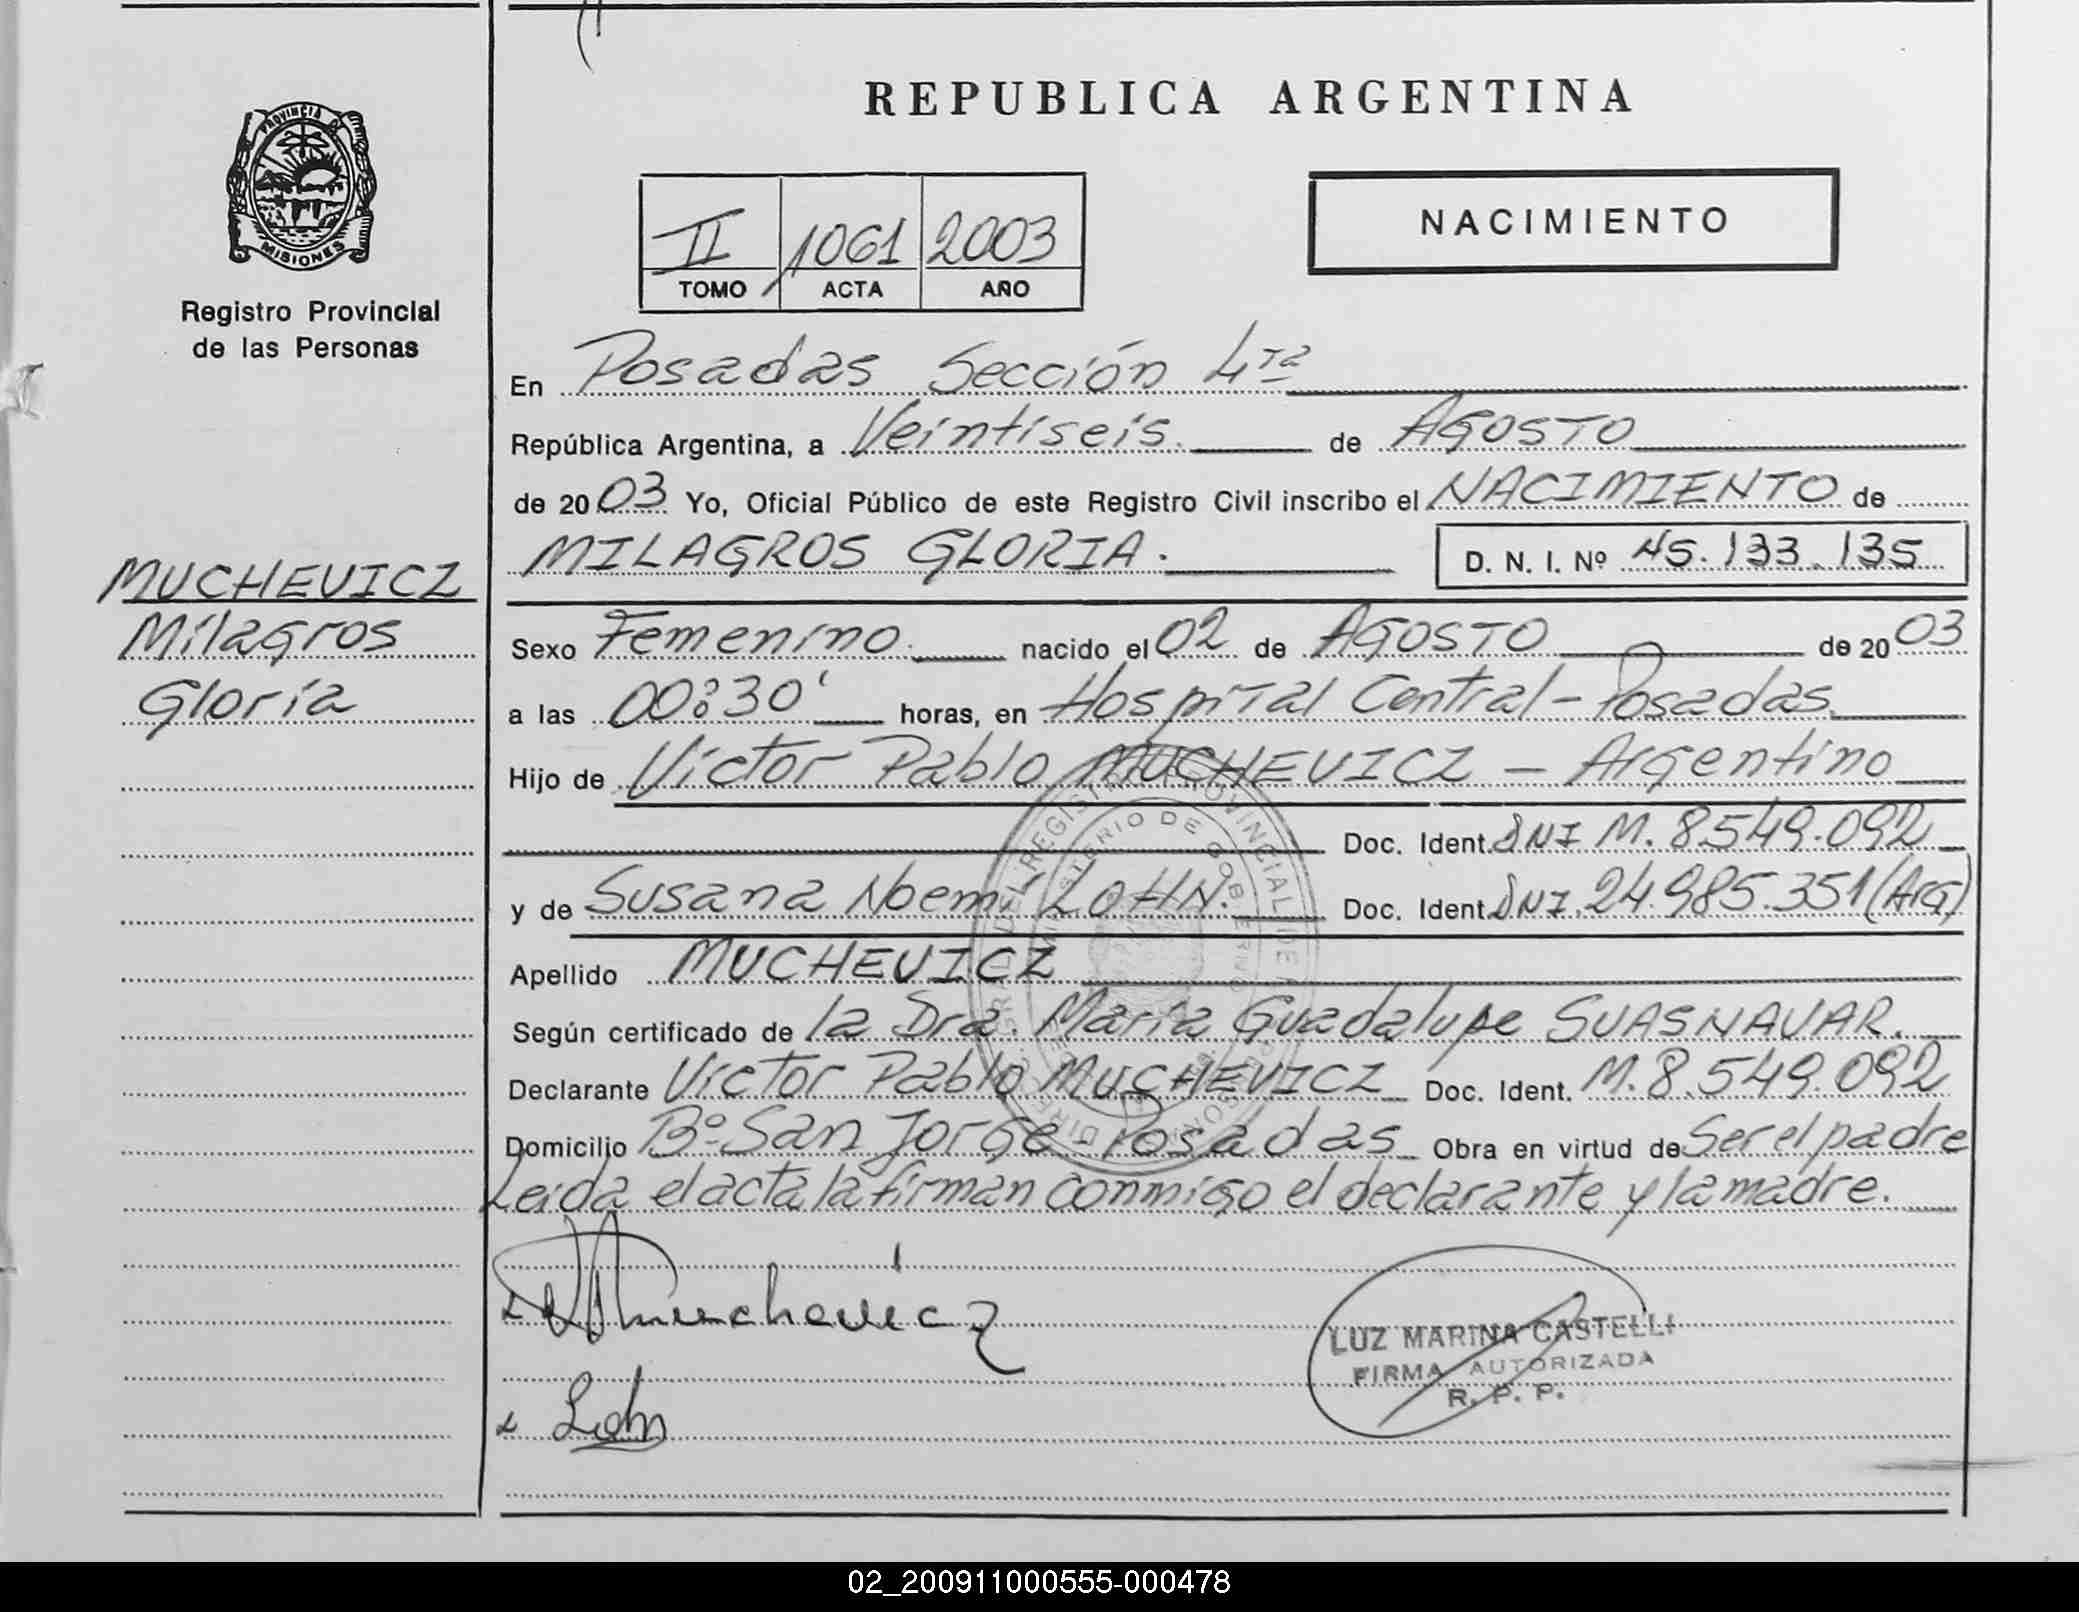 REPUBLICA ARGENTINA
PROVINCIA DE
MISIONES
Registro Provincial
de las Personas
II 1061 2003
TOMO ACTA AÑO
NACIMIENTO
En Posadas Sección 4ta
República Argentina, a Veintiseis. de AGOSTO
de 20 03 Yo, Oficial Público de este Registro Civil inscribo el NACIMIENTO de
MILAGROS GLORIA. D. N. I. Nº 45.133.135
MUCHEVICZ
Milagros
Gloria
Sexo Femenino. nacido el 02 de AGOSTO de 20 03
a las 00:30' horas, en Hospital Central - Posadas.
Hijo de Victor Pablo MUCHEVICZ - Argentino
Doc. Ident. DNI M. 8.549.092
y de Susana Noemí LOHN. Doc. Ident. DNI. 24.985.351 (Arg)
Apellido MUCHEVICZ
Según certificado de la Dra. María Guadalupe SUASNAVAR.
Declarante Victor Pablo MUCHEVICZ Doc. Ident. M. 8.549.092
Domicilio Bº San Jorge - Posadas Obra en virtud de Ser el padre
Leida el acta la firman conmigo el declarante y la madre.
Muchevicz
Lohn
LUZ MARINA CASTELLI
FIRMA AUTORIZADA
R. P. P.
02_200911000555-000478